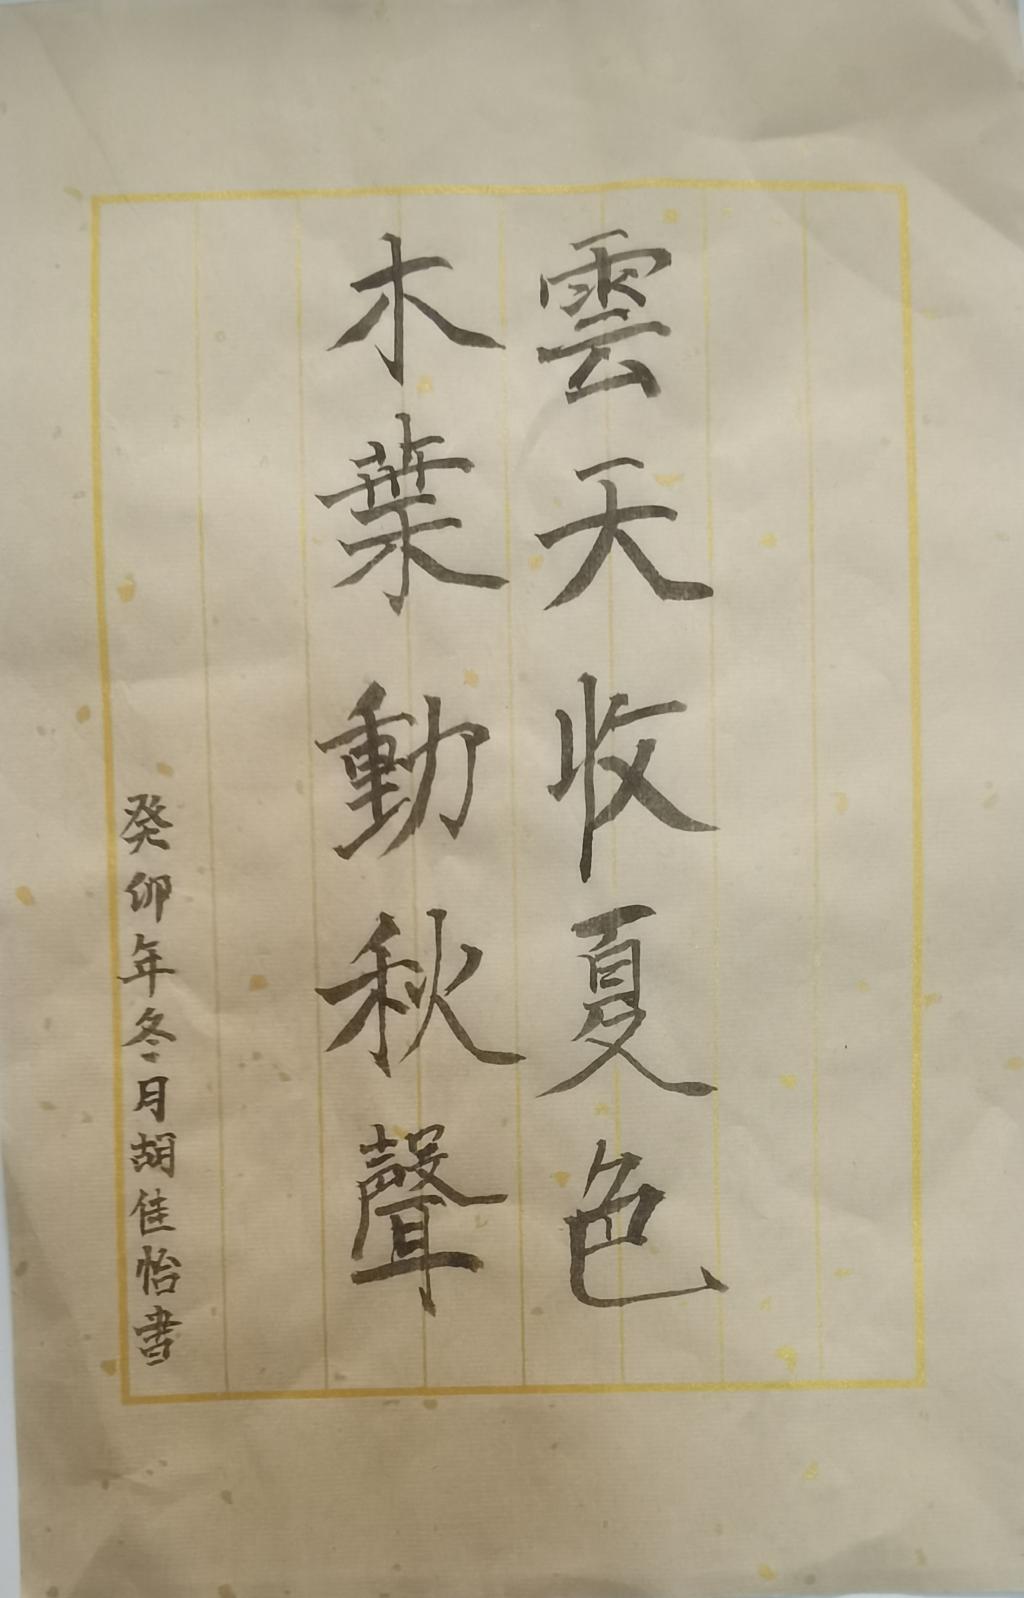 雲天收夏色
木葉動秋聲
癸卯年冬月胡佳怡書